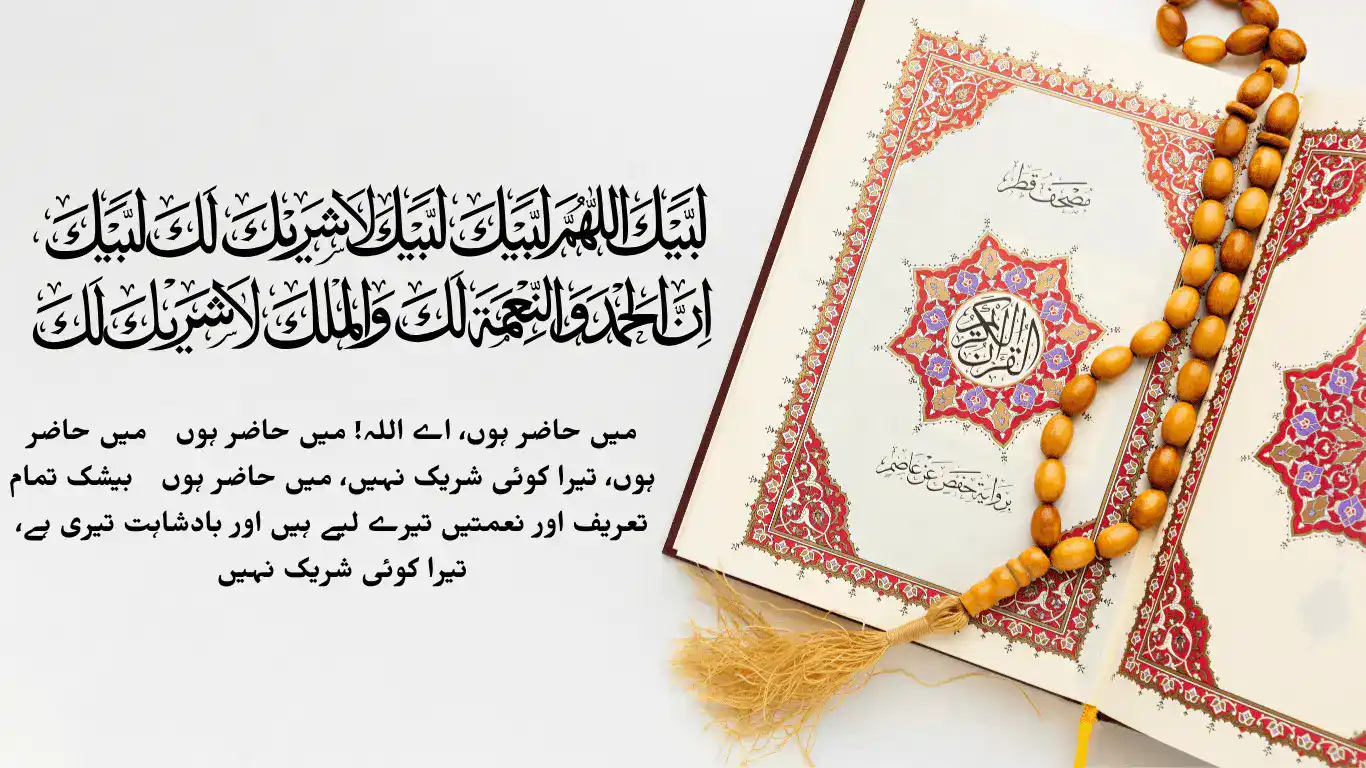 لَبَّيْكَ اللّٰهُمَّ لَبَّيْكَ لَبَّيْكَ لَا شَرِيْكَ لَكَ لَبَّيْكَ
اِنَّ الْحَمْدَ وَالنِّعْمَةَ لَكَ وَالْمُلْكَ لَا شَرِيْكَ لَكَ
میں حاضر ہوں، اے اللہ! میں حاضر ہوں میں حاضر
ہوں، تیرا کوئی شریک نہیں، میں حاضر ہوں بیشک تمام
تعریف اور نعمتیں تیرے لیے ہیں اور بادشاہت تیری ہے،
تیرا کوئی شریک نہیں
مصحف قطر
القرآن الكريم
برواية حفص عن عاصم